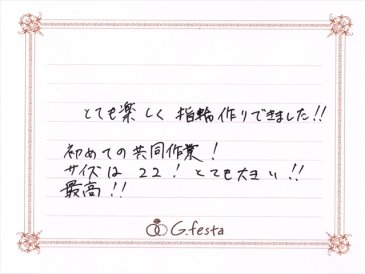 とても楽しく指輪作りできました!!
初めての共同作業!
サイズは22!とても大きい!!
最高!!
G.festa